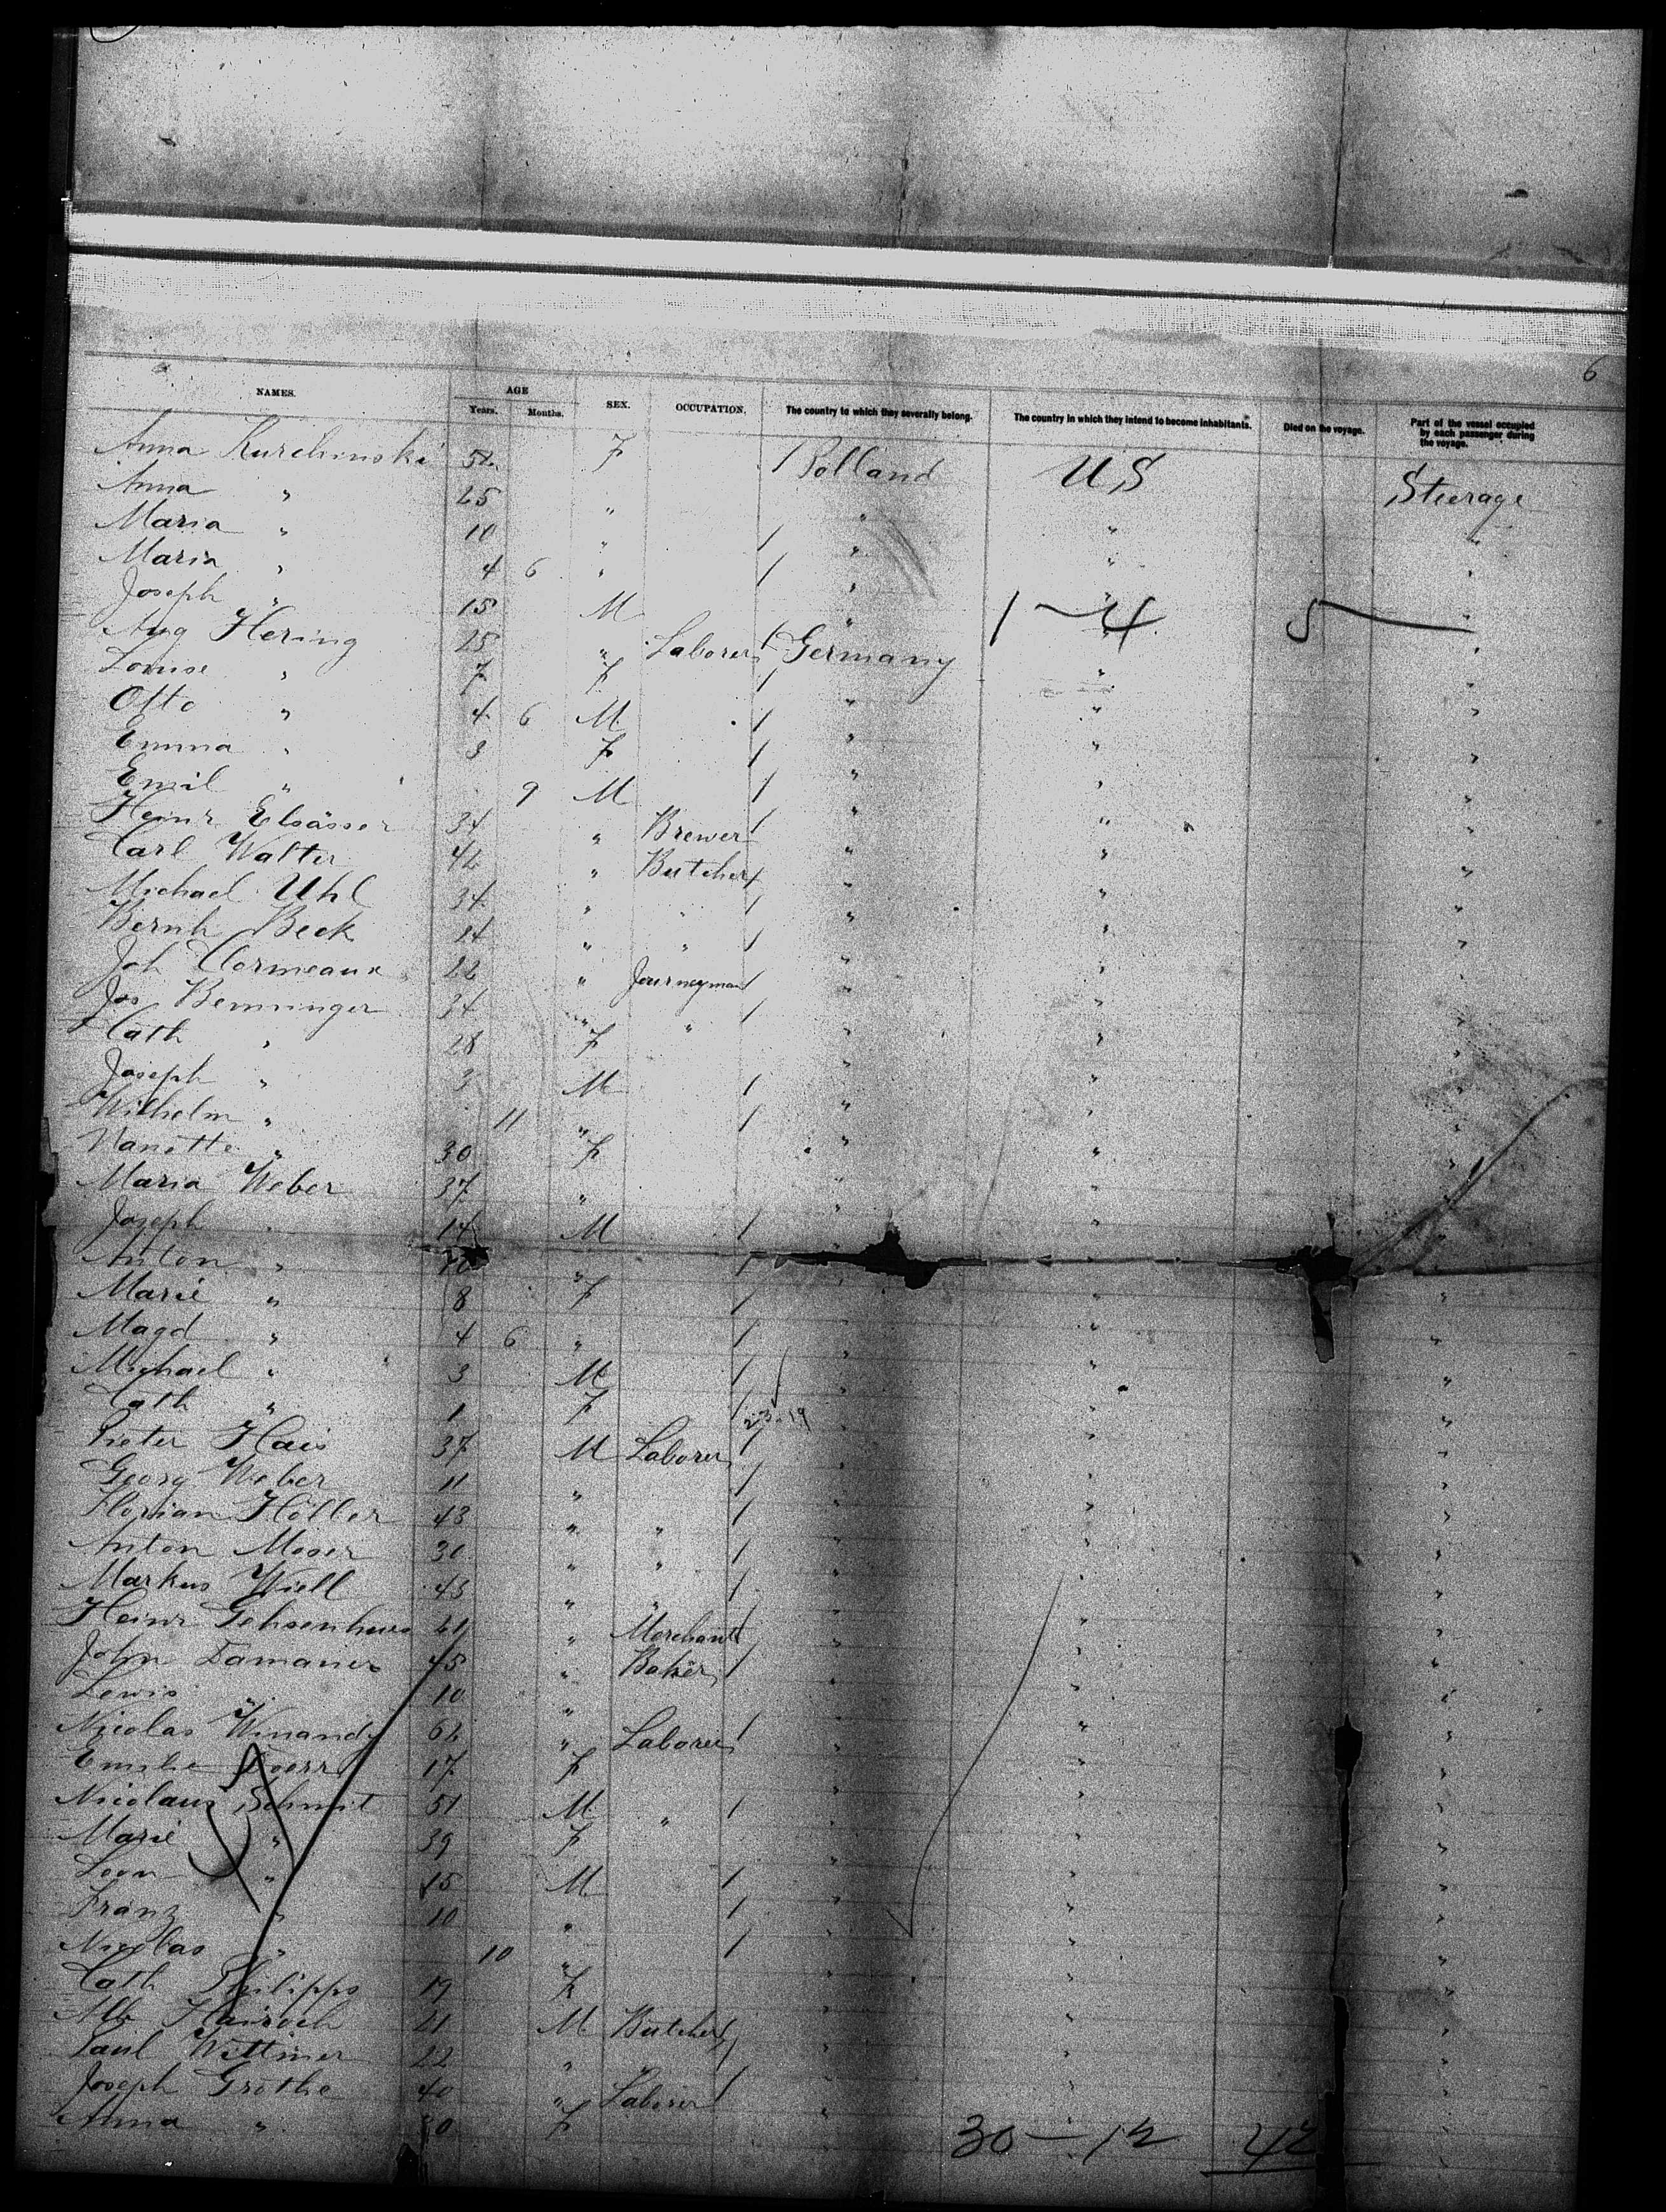 6
NAMES. AGE Years. Months. SEX. OCCUPATION. The country to which they severally belong. The country in which they intend to become inhabitants. Died on the voyage. Part of the vessel occupied by each passenger during the voyage.
Anna Kurchinski 52 F Polland US Steerage
Anna " 25 " " " "
Maria " 10 " " " "
Maria " 4 6 " " " "
Joseph " 15 M " " "
1 - 4 5
Aug Hering 25 " Laborer Germany " "
Louise " 7 F " " "
Otto " 4 6 M " " "
Emma " 3 F " " "
Emil " 9 M " " "
Heinr Elsässer 34 " Brewer " " "
Carl Walter 42 " Butcher " " "
Michael Uhl 34 " " " " "
Bernh Beck 14 " " " " "
Joh Cormeaux 22 " Journeyman " " "
Jos Benninger 34 " " " " "
Cath " 28 F " " "
Joseph " 3 M " " "
Wilhelm " 11 " " " "
Nanette " 30 F " " "
Maria Weber 37 " " " "
Joseph " 14 M " " "
Anton " " " "
Marie " 8 F " " "
Magd " 4 6 " " " "
Michael " 3 M " " "
Cath " 1 F " " "
23-19
Peter Hais 37 M Laborer " " "
Georg Weber 11 " " " "
Florian Höller 43 " " " " "
Anton Moser 30 " " " " "
Markus Well 43 " " " " "
Heinr 61 " Merchant " " "
John 45 " Baker " " "
Lewis 10 " " " "
Nicolas Winandy 62 " Laborer " " "
Emilie Doerr 17 F " " "
Nicolaus Schmit 51 M " " " "
Marie " 39 F " " "
Leon " 15 M " " "
Franz " 10 " " " "
Nicolas " 10 " " " "
Cath Philipps 19 F " " "
Alb 21 M Butcher " " "
Paul Wittmer 22 " " " " "
Joseph Grothe 40 " Laborer " " "
Anna " 30 F " " "
30 - 12 42